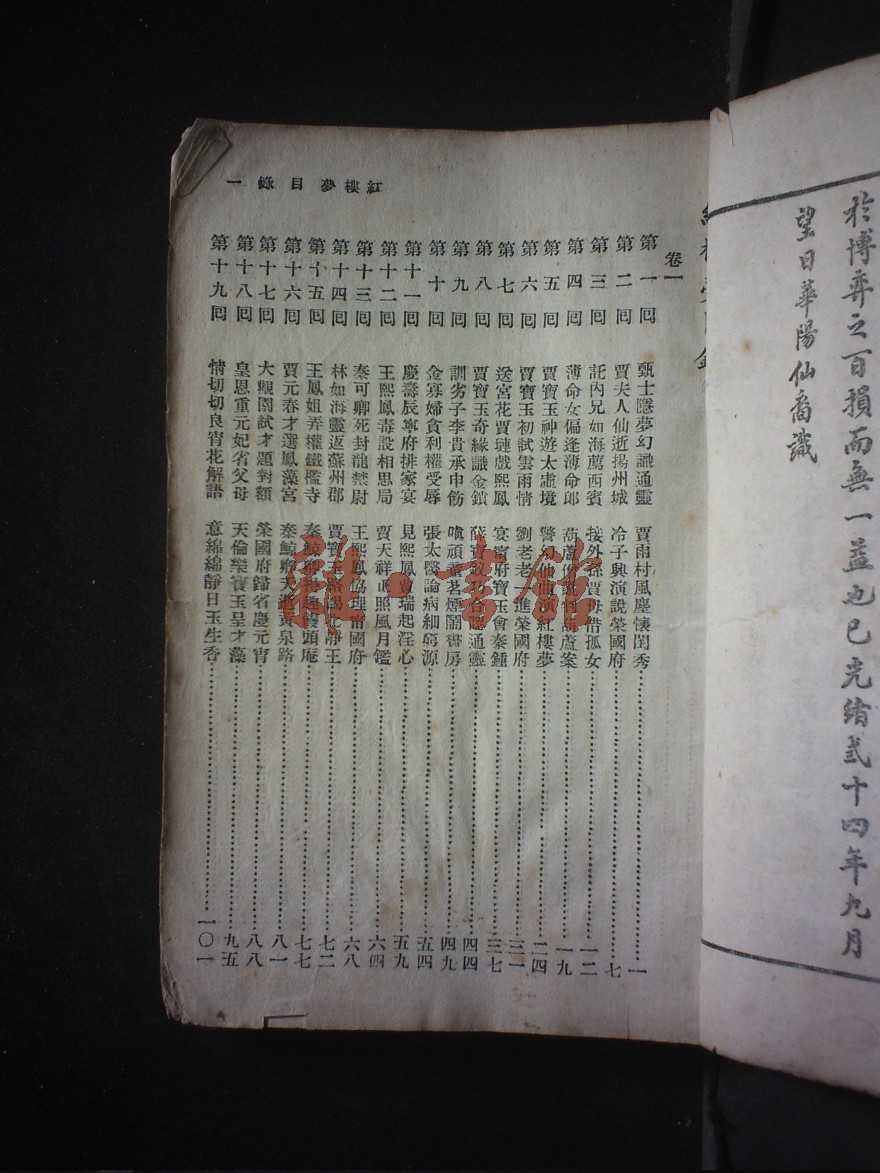 於博弈之百損而無一益也已光緒弍十四年九月
望日華陽仙裔識
紅樓夢目錄
卷一
第一回 甄士隱夢幻識通靈 賈雨村風塵懷閨秀 一
第二回 賈夫人仙逝揚州城 冷子興演說榮國府 七
第三回 託內兄如海薦西賓 接外孫賈母惜孤女 一二
第四回 薄命女偏逢薄命郎 葫蘆僧 葫蘆案 一九
第五回 賈寶玉神遊太虛境 警幻仙 演紅樓夢 二四
第六回 賈寶玉初試雲雨情 劉老老一進榮國府 三一
第七回 送宮花賈璉戲熙鳳 宴甯府寶玉會秦鍾 三七
第八回 賈寶玉奇緣識金鎖 薛寶釵 通靈 四四
第九回 訓劣子李貴承申飭 嗔頑童茗煙鬧書房 四九
第十回 金寡婦貪利權受辱 張太醫論病細窮源 五四
第十一回 慶壽辰寧府排家宴 見熙鳳賈瑞起淫心 五九
第十二回 王熙鳳毒設相思局 賈天祥正照風月鑑 六四
第十三回 秦可卿死封龍禁尉 王熙鳳協理甯國府 六八
第十四回 林如海靈返蘇州郡 賈寶玉路謁北靜王 七二
第十五回 王鳳姐弄權鐵檻寺 秦鯨卿得趣饅頭庵 七七
第十六回 賈元春才選鳳藻宮 秦鯨卿夭逝黃泉路 八一
第十七回 大觀園試才題對額 榮國府歸省慶元宵 八八
第十八回 皇恩重元妃省父母 天倫樂寶玉呈才藻 九五
第十九回 情切切良宵花解語 意綿綿靜日玉生香 一〇一
紅樓夢目錄 一